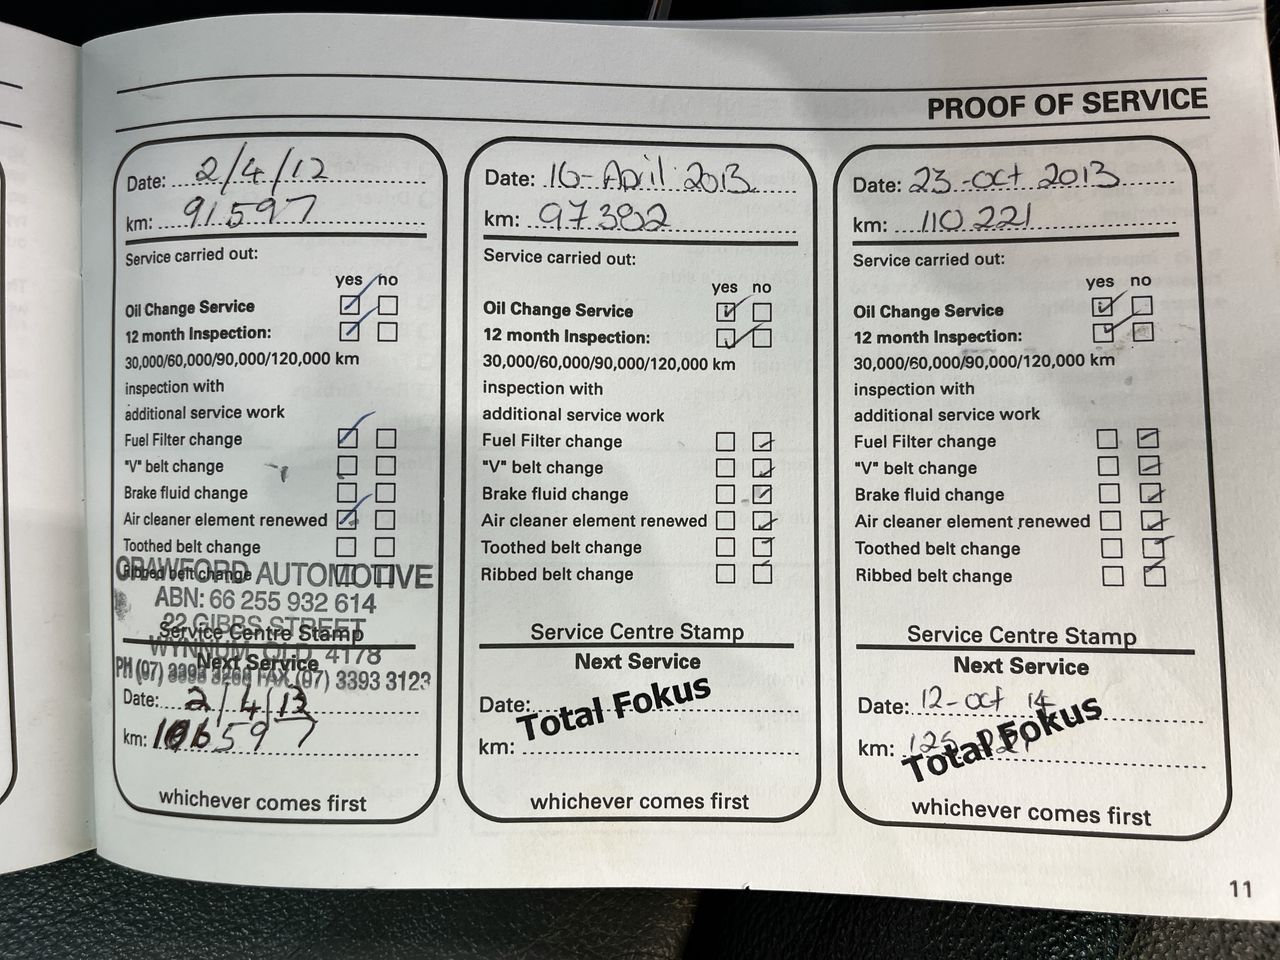 PROOF OF SERVICE
Date: 2/4/12
km: 91597
Service carried out:
yes no
Oil Change Service
12 month Inspection:
30,000/60,000/90,000/120,000 km
inspection with
additional service work
Fuel Filter change
"V" belt change
Brake fluid change
Air cleaner element renewed
Toothed belt change
Ribbed belt change
CRAWFORD AUTOMOTIVE
ABN: 66 255 932 614
22 GIBBS STREET
Service Centre Stamp
WYNNUM QLD 4178
Next Service
PH (07) 3393 3268 FAX (07) 3393 3123
Date: 2/4/13
km: 106597
whichever comes first
Date: 16-April 2013
km: 97382
Service carried out:
yes no
Oil Change Service
12 month Inspection:
30,000/60,000/90,000/120,000 km
inspection with
additional service work
Fuel Filter change
"V" belt change
Brake fluid change
Air cleaner element renewed
Toothed belt change
Ribbed belt change
Service Centre Stamp
Next Service
Date:
Total Fokus
km:
whichever comes first
Date: 23-oct 2013
km: 110221
Service carried out:
yes no
Oil Change Service
12 month Inspection:
30,000/60,000/90,000/120,000 km
inspection with
additional service work
Fuel Filter change
"V" belt change
Brake fluid change
Air cleaner element renewed
Toothed belt change
Ribbed belt change
Service Centre Stamp
Next Service
Date: 12-oct 14
Total Fokus
km:
whichever comes first
11